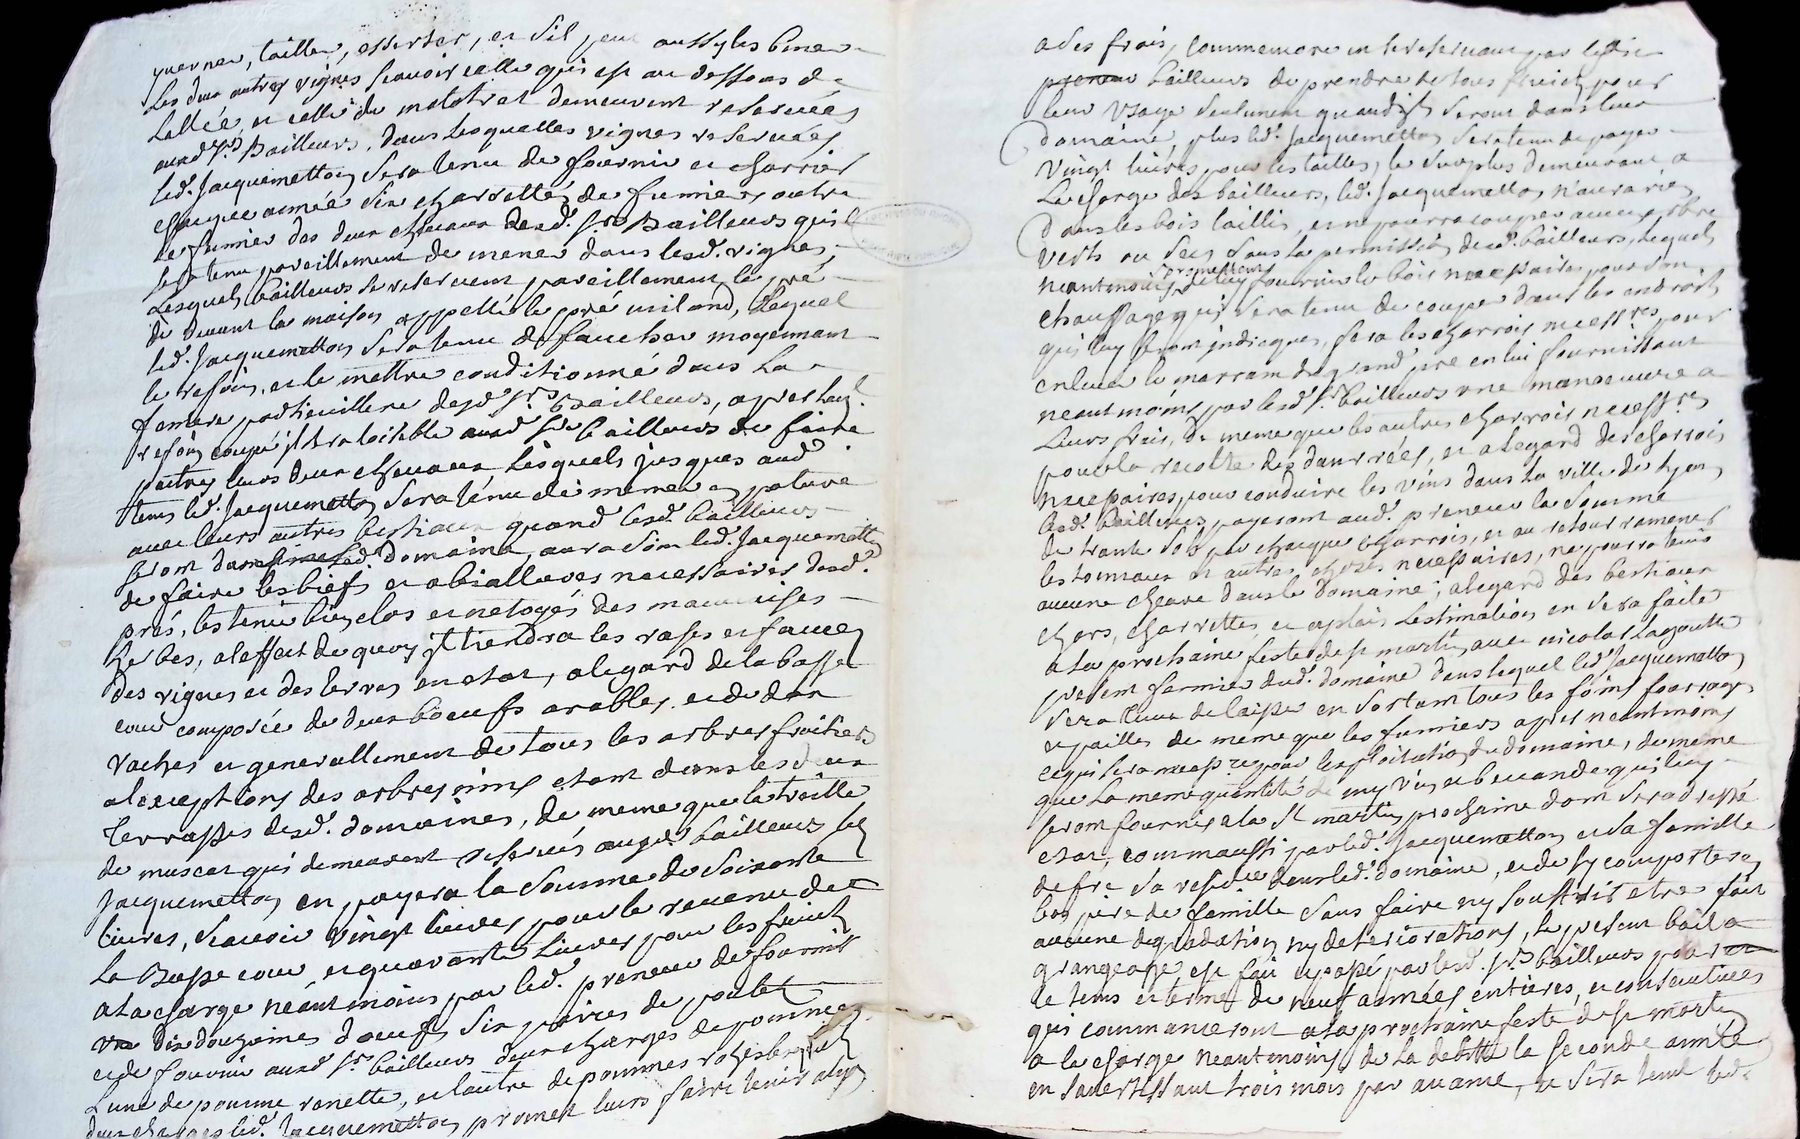 tailler, esserter, et s'il peut aussy les biner
Les deux autres vignes scavoir celle qui est au dessous de
Lallée, et celle du molotrat demeurent reservées
auxd. Srs Bailleurs, dans lesquelles vignes reservées
led. Jacquemetton sera tenu de fournir et charrier
chaque année six charrettées de fumier outre
le fumier des deux chevaux desd. Srs Bailleurs qu'il
sera tenu pareillement de mener dans lesd. vignes,
Lesquels bailleurs se reservent pareillement le pré
de devant la maison appellé le pré miland, lequel
led. Jacquemetton sera tenu de faucher moyennant
le refoin, et le mettre conditionné dans la
feniere particulliere desd. Srs Bailleurs, apres led.
refoin coupé il sera loisible auxd. Srs bailleurs de faire
paitre leurs deux chevaux, lesquels jusques aud.
tems led. Jacquemetton sera tenu de mener en pature
avec leurs autres bestiaux quand lesd. bailleurs
seront dans led. domaine, aura soin led. Jacquemetton
de faire les biefs et abialleres necessaires desd.
prés, les tenir bien clos et netoyés des mauvaises
herbes, a l'effect de quoy il tiendra les rases et fances
des vignes et des terres en etat, a legard de la basse
cour composée de deux boeufs arables, et de deux
vaches et generallement de tous les arbres fruitiers
a lexception des arbres nins etant dans les deux
Terrasses desd. domaines, de meme que la treille
de muscat qui demeurent reservés auxd. bailleurs led.
Jacquemetton en payera la somme de soixante
livres, scavoir vingt livres pour le revenu de
la Basse cour, et quarante Livres pour les fruits
a la charge néantmoins par led. preneur de fournir
dix douzaines d'oeufs six paires de poulets
et de fournir auxd. Srs bailleurs deux charges de pommes
L'une de pomme ranette, et l'autre de pommes
deux charges led. Jacquemetton promet leurs faire tenir
a ses frais, comme encore se reservent par
bailleurs de prendre de tous fruits pour
leur usage seulement quand ils seront dans leur
domaine, plus led. Jacquemetton sera tenu de payer
vingt livres pour les tailles, le surplus demeurant a
La charge des bailleurs, led. Jacquemetton n'aura rien
dans les bois taillis, et ne pourra couper aucun arbre
verts ou secs sans la permission desd. bailleurs, lesquels
neantmoins promettent de luy fournir le bois necessaire pour son
chauffage qu'il sera tenu de couper dans les endroits
qui luy seront indiqués, fera les charrois necessres pour
enlever le marram du grand pré en lui fournissant
neantmoins par lesd. Srs bailleurs une manoeuvre a
Leurs frais, de meme que les autres charrois necessres
pour la recolte des danrrées, et a legard des charrois
necessaires pour conduire les vins dans la ville de Lyon
lesd. bailleurs payeront aud. preneur la somme
de trante sols par chaque charrois, et au retour ramener
les tonneaux et autres choses necessaires, ne pourra tenir
aucune cheavre dans le domaine; a legard des bestiaux
chars, charrettes, et aplais Lestimation en sera faite
a la prochaine feste de st martin avec nicolas Lagoutte
present fermier dud. domaine dans lequel led. Jacquemetton
sera tenu de laisser en sortant tous les foins fourrages
et pailles de meme que les fumiers apres neantmoins
ce qui sera necessre pour lexploitation du domaine, de meme
que la meme quantité de et buande qui luy
seront fournis a la St martin prochaine dont sera dressé
etat, comm'aussi par led. Jacquemetton et sa famille
de fre sa residce dans led. domaine, et de sy comporter en
bon pere de famille sans faire ny souffrir etre fait
aucune degradation, ny deteriorations, le present bail a
grangeage est fait et passé par lesd. Srs bailleurs pour
le tems et terme de neuf années entieres, et consecutives
qui commenceront a la prochaine feste de st martin
a la charge neantmoins de la debitte la seconde année
en savertissant trois mois par avance, et sera tenu led.